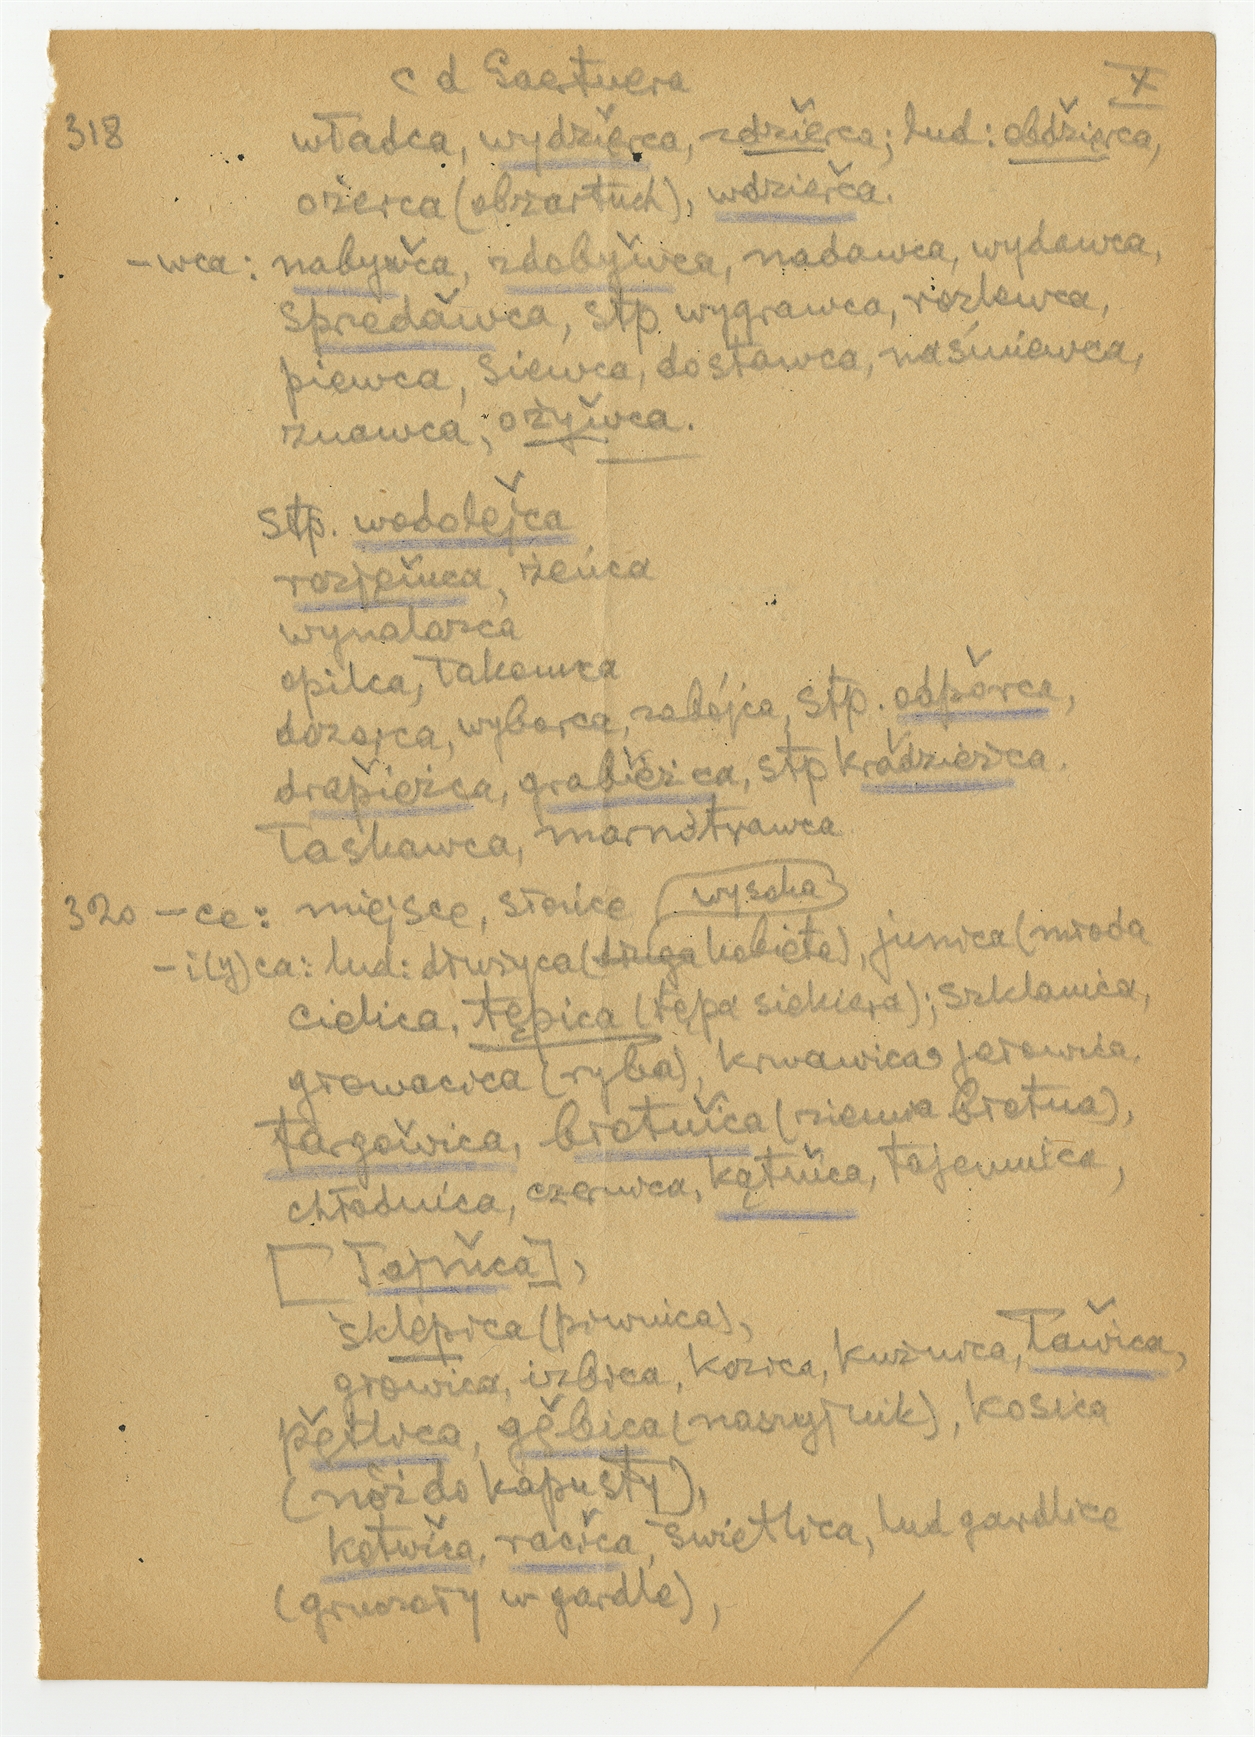 c d Gaertnera X
318 władca, wydzierca, zdzierca; lud: obdzierca,
ożerca (obżartuch), wdzierca.
-wca: nabywca, zdobywca, nadawca, wydawca,
sprzedawca, stp wygrawca, rozlewca,
piewca, siewca, dostawca, naśmiewca,
znawca; ożywca.
stp. wodolejca
rozjemca, żeńca
wynalazca
opilca, łakomca
dozorca, wyborca, zabójca, stp. odpórca,
drapieżca, grabieżca, stp kradzieżca.
łaskawca, marnotrawca
320 -ce: miejsce, słońce wysoka
-i(y)ca: lud: dłużyca (długa kobieta), junica (młoda
cielica, tępica (tępa siekiera); szklanica,
głowacica (ryba), krwawica, jałowica.
targowica, błotnica (ziemia błotna),
chłodnica, czerwca, kątnica, tajemnica,
[Tajnica],
sklepica (piwnica),
głowica, izbica, kozica, kuźnica, ławica,
pętlica, gębica (naszyjnik), kosica
(nóż do kapusty),
kotwica, racica, świetlica, lud gardlice
(gruczoły w gardle),